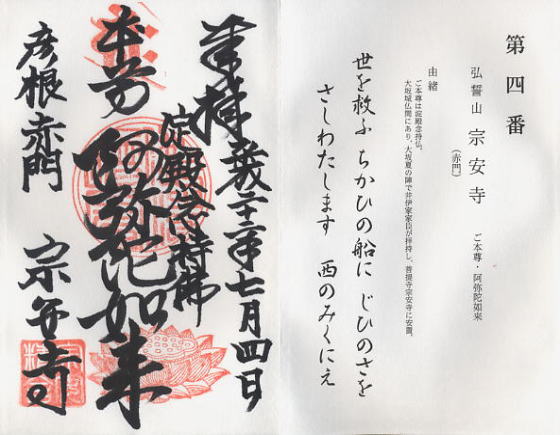 第四番
弘誓山 宗安寺 ご本尊・阿弥陀如来
(赤門)
由緒
ご本尊は淀殿念持仏。
大坂城仏間にあり、大坂夏の陣で井伊家家臣が拝持し、菩提寺宗安寺に安置。
世を救ふ ちかひの船に じひのさを
さしわたします 西のみくにえ
奉拝 二十六年七月四日
淀殿念持佛
本尊 阿弥陀如来
彦根赤門 宗安寺